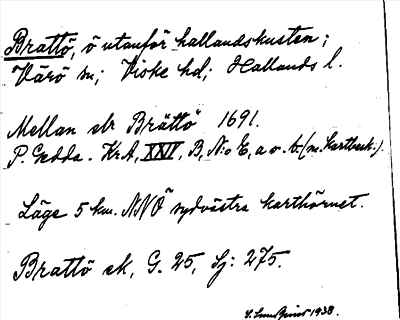 Brattö, ö utanför hallandskusten;
Värö sn; Viske hd; Hallands l.
Mellan o Brättö 1691.
P. Gedda. Kr.A, XXIV, B, N:o 6, a o. b. (m. kartbeskr.).
Läge 5 km. NNÖ sydvästra karthörnet.
Brattö ek, G. 25, Sj: 275.
1938.